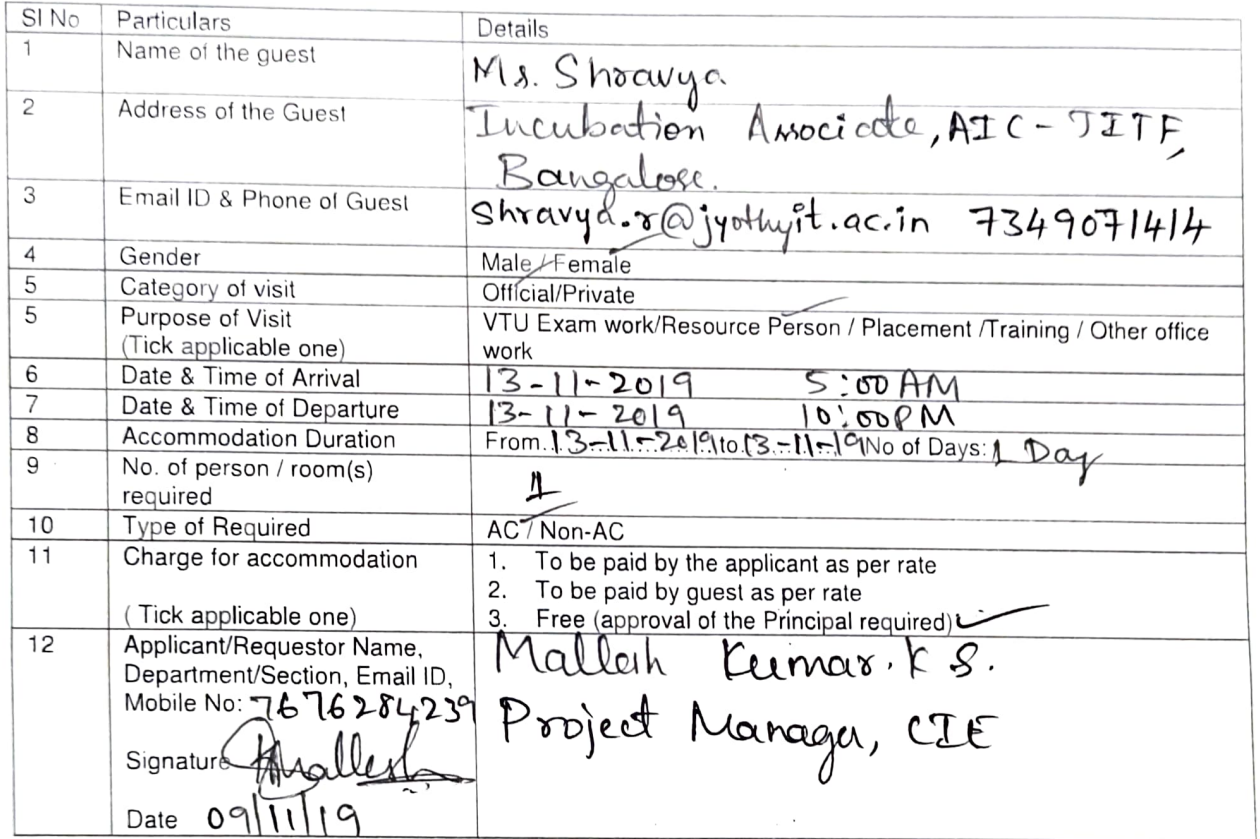 Sl No Particulars Details
1 Name of the guest Ms. Shravya
2 Address of the Guest Incubation Associate, AIC - JITF,
Bangalore.
3 Email ID & Phone of Guest shravya.r@jyothyit.ac.in 7349071414
4 Gender Male / Female
5 Category of visit Official/Private
5 Purpose of Visit VTU Exam work/Resource Person / Placement /Training / Other office
(Tick applicable one) work
6 Date & Time of Arrival 13-11-2019 5:00 AM
7 Date & Time of Departure 13-11-2019 10:00PM
8 Accommodation Duration From 13-11-2019 to 13-11-19 No of Days: 1 Day
9 No. of person / room(s)
required 1
10 Type of Required AC / Non-AC
11 Charge for accommodation 1. To be paid by the applicant as per rate
2. To be paid by guest as per rate
( Tick applicable one) 3. Free (approval of the Principal required) ✓
12 Applicant/Requestor Name, Kumar. K S.
Department/Section, Email ID,
Mobile No: 7676284239 Project Manager, CIE
Signature
Date 09/11/19